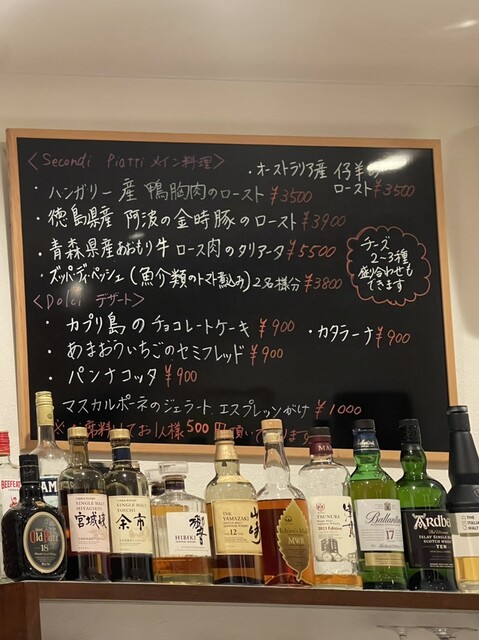 <Secondi Piatti メイン料理>
・オーストラリア産 仔羊の
ロースト ¥3500
・ハンガリー産 鴨胸肉のロースト ¥3500
・徳島県産 阿波の金時豚のロースト ¥3900
・青森県産あおもり牛 ロース肉のタリアータ ¥5500
・ズッパ・ディ・ペッシェ(魚介類のトマト煮込み)2名様分 ¥3800
チーズ
2~3種
盛り合わせも
できます
<Dolci デザート>
・カプリ島のチョコレートケーキ ¥900
・カタラーナ ¥900
・あまおういちごのセミフレッド ¥900
・パンナコッタ ¥900
マスカルポーネのジェラート エスプレッソがけ ¥1000
席料としてお1人様500円頂いて
ます
BEEFEATER
Old Parr
18
宮城峡
余市
HIBIKI
響
THE YAMAZAKI
12
山崎
MWR
TSUNUKI
Ballantine's
17
Ardbeg
ISLAY SINGLE MALT
SCOTCH WHISKY
TEN
THE
MALT